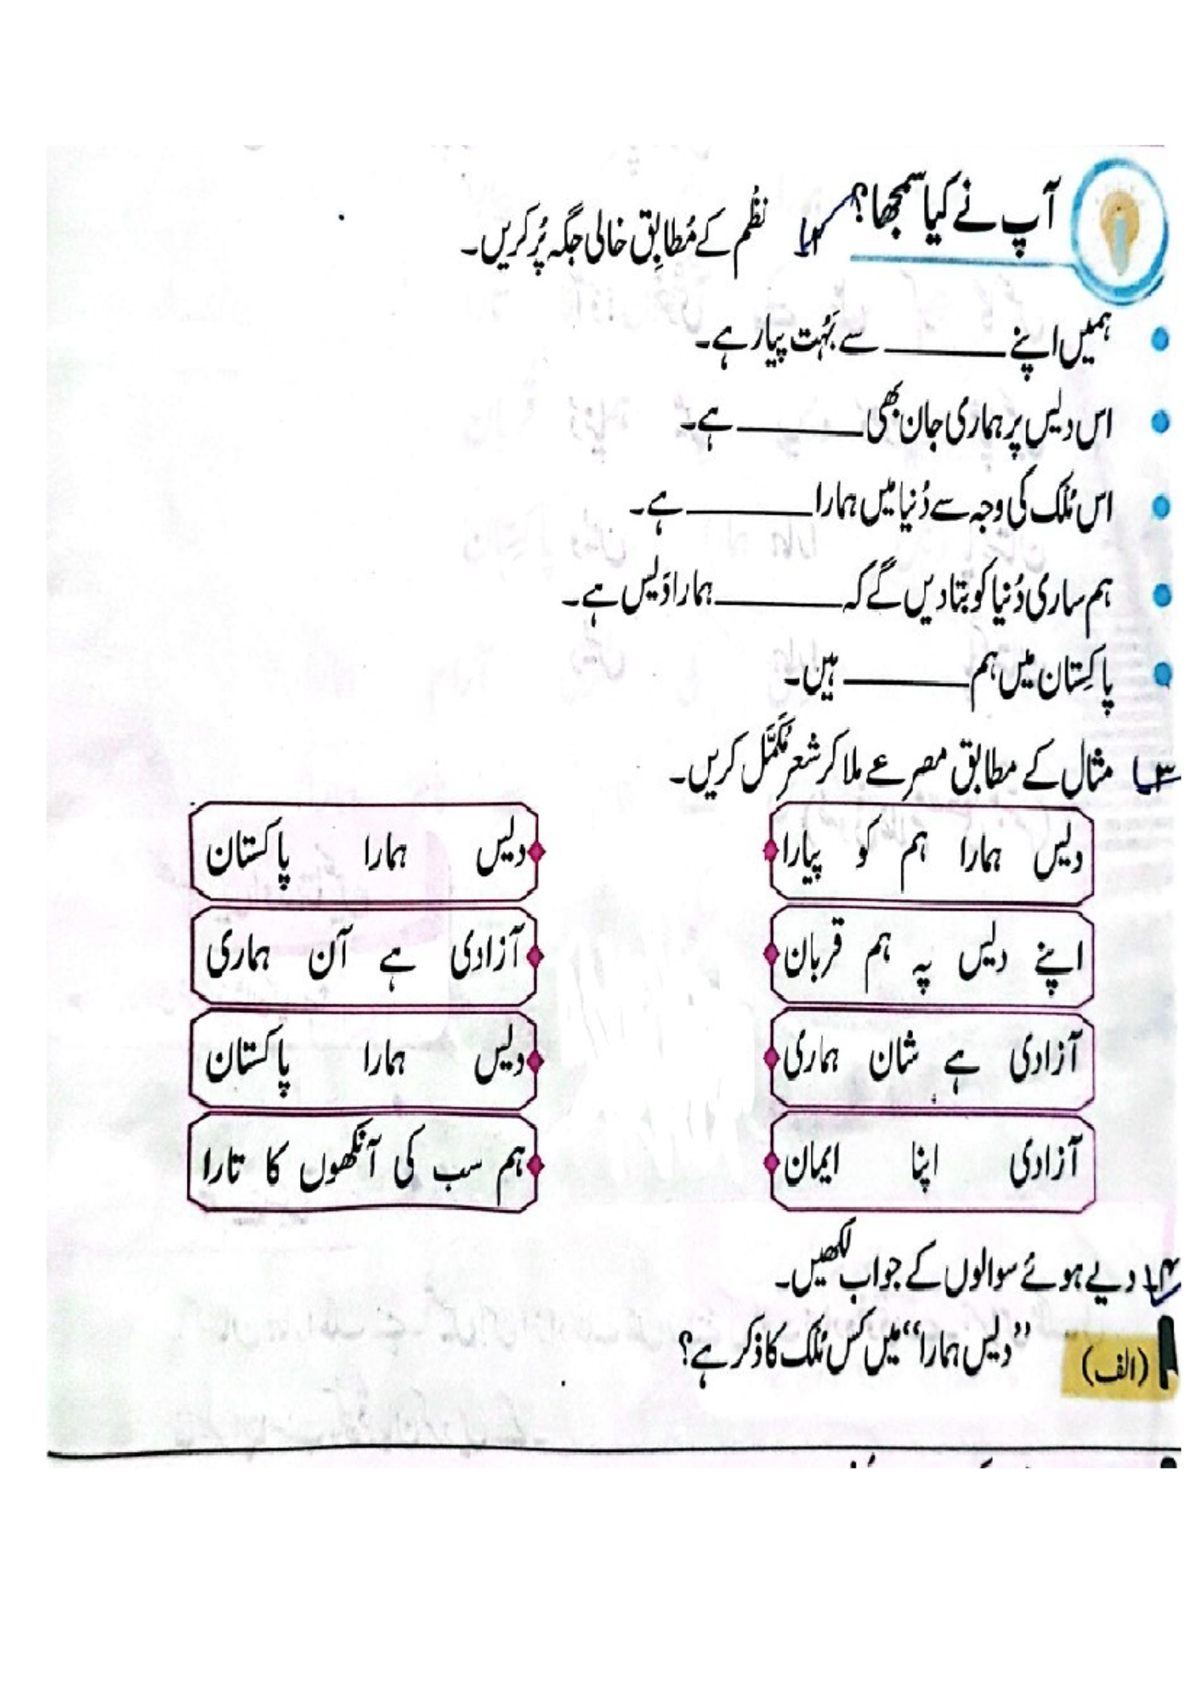 آپ نے کیا سمجھا؟
۲۔ نظم کے مُطابِق خالی جگہ پُر کریں۔
ہمیں اپنے ________ سے بَہُت پیار ہے۔
اس دیس پر ہماری جان بھی ________ ہے۔
اس مُلک کی وجہ سے دُنیا میں ہمارا ________ ہے۔
ہم ساری دُنیا کو بتا دیں گے کہ ________ ہمارا دَیس ہے۔
پاکِستان میں ہم ________ ہیں۔
۳۔ مثال کے مطابق مصرعے ملا کر شعر مُکمَّل کریں۔
دیس ہمارا ہم کو پیارا
دیس ہمارا پاکستان
اپنے دیس پہ ہم قربان
آزادی ہے آن ہماری
آزادی ہے شان ہماری
دیس ہمارا پاکستان
آزادی اپنا ایمان
ہم سب کی آنکھوں کا تارا
۴۔ دیے ہوئے سوالوں کے جواب لکھیں۔
(الف) ”دیس ہمارا“ میں کس مُلک کا ذکر ہے؟